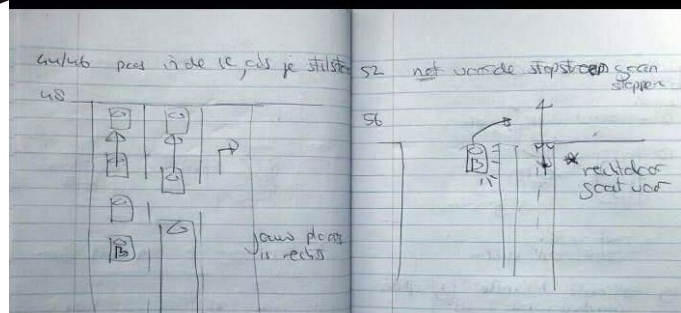 44/46 pas in de 1e, als je stilst
48
B
jouw plaats
is rechts
52 net voor de stopstreep gaan
stoppen
56
B
* rechtdoor
gaat voor